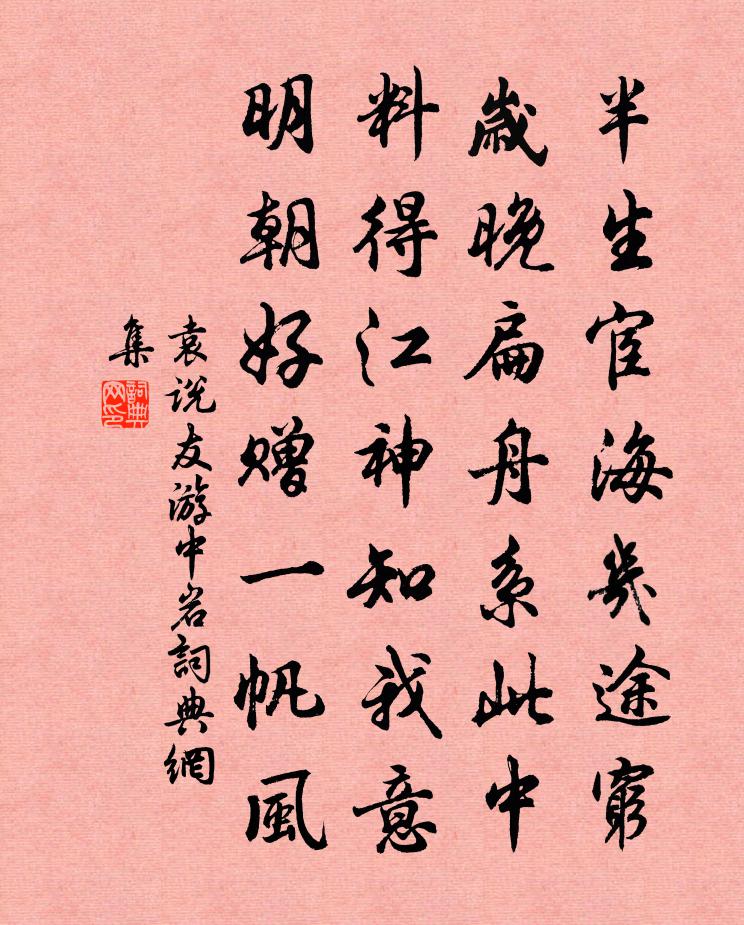 半生宦海幾途窮
歲晚扁舟系此中
料得江神知我意
明朝好赠一帆風
袁说友游中岩詞典網
集
詞典
网印